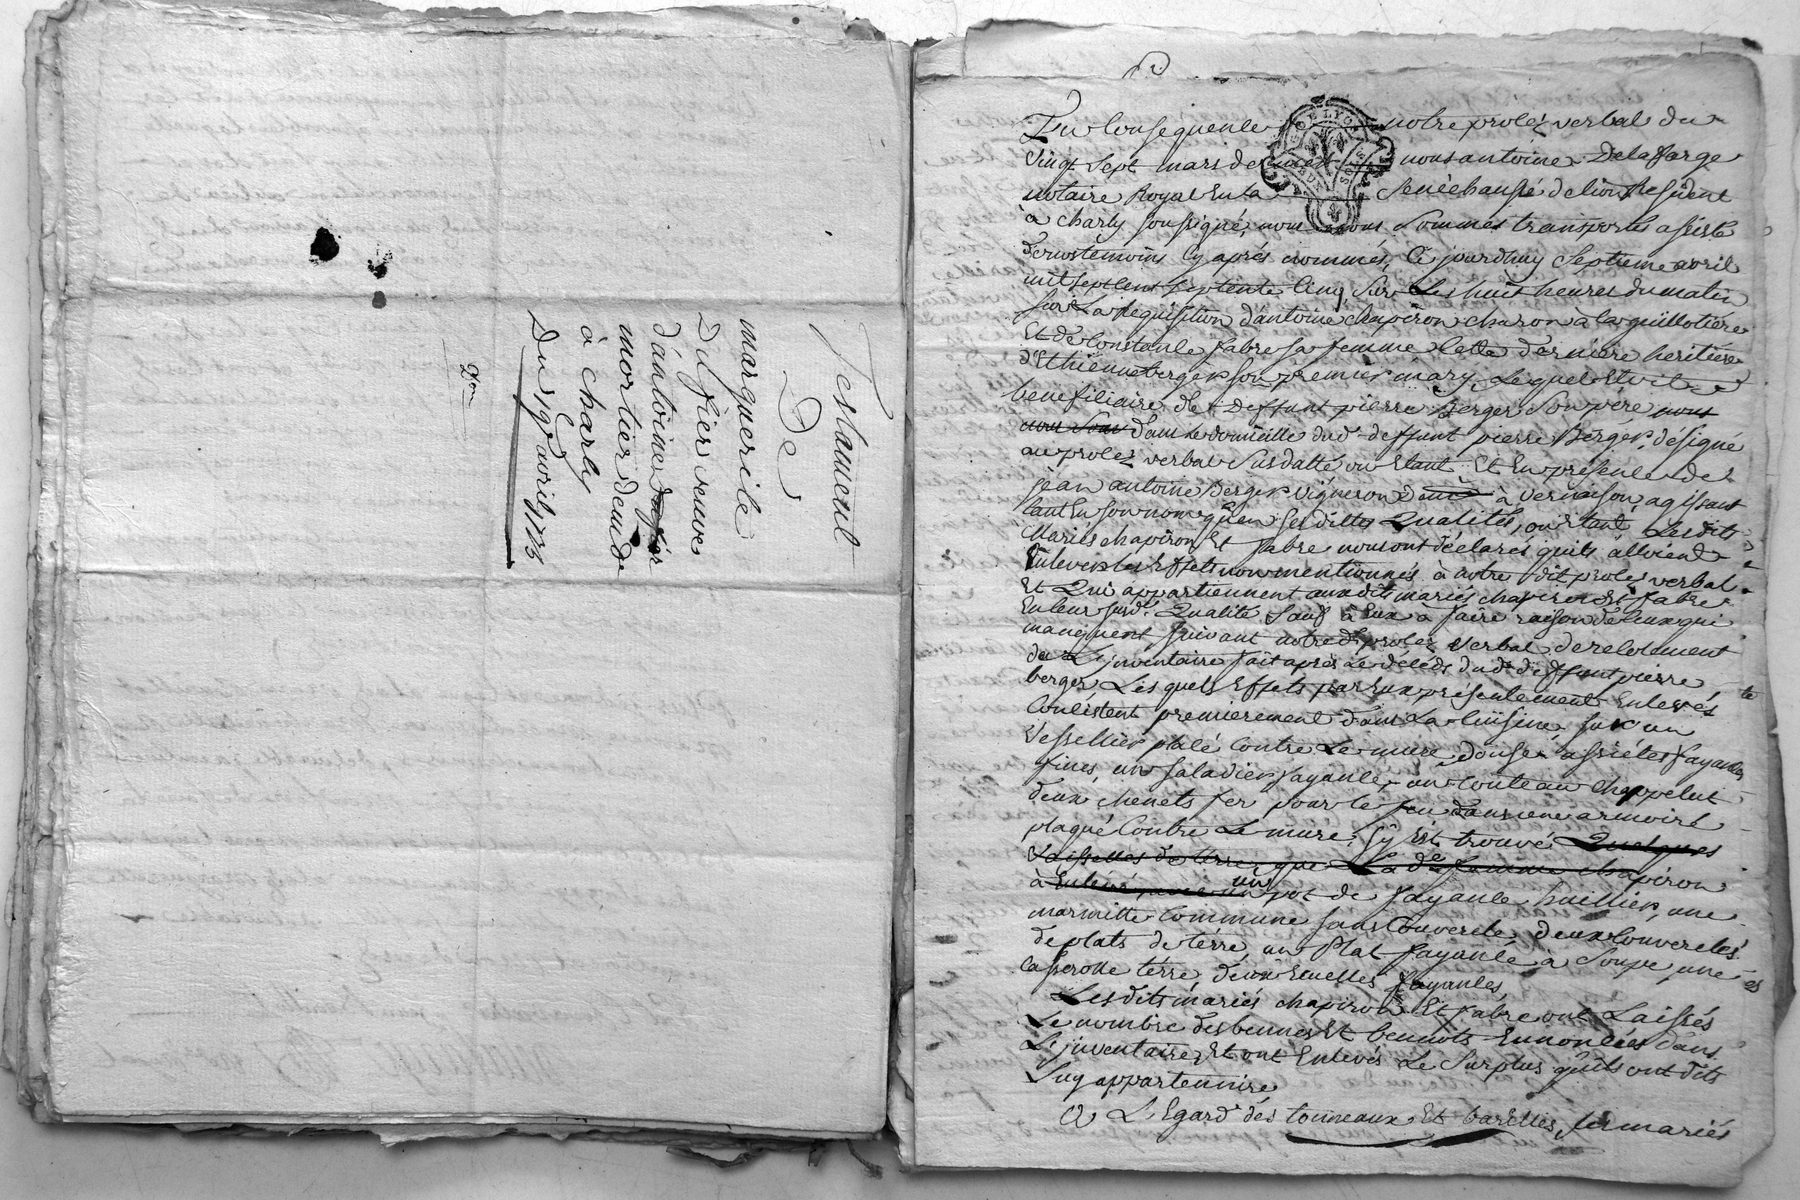 Testament
De
marguerite
Dufier veuve
d'antoine
mortier deude
à charly
Du 19e avril 1773
2on
En Consequence notre procéz verbal du
Vingt sept mars dernier nous antoine Delafarge
notaire Royal En la Senéchaussé de lion Résident
à charly soussigné, nous sommes transportés assisté
de nos témoins Cy aprés nommés, Ce jourdhuy Septieme avril
mil sept cens septente Cinq, sur Les huit heures du matin
sur La Réquisition d'antoine chapiron charon à la guillotiére
Et de Constance fabre sa femme Cette derniére heritiére
d'Ethienne berger son premier mary, Lequel Etoit
beneficiaire de Deffunt pierre Berger Son pére nous
nous Som dans Le domicille dud. deffunt pierre Berger, désigné
au procéz verbal Susdatté ou Etant Et En présence de
jean antoine Berger vigneron à vernaison, agissant
tant En son nom qu'en ses dittes Qualités, ou Etant Lesdits
Mariés chapiron Et fabre nous ont déclarés quils alloient
Enlever les Effets non mentionnés à notre dit procéz verbal
Et Qui appartiennent auxdits mariés chapiron Et fabre
En leur susd. Qualité Sauf à Eux à faire raison de Ceux qui
manquent suivant notre d. procéz verbal de recolement
de L'jnventaire fait aprés Le décéds dud. deffunt pierre
berger, Lesquels Effets par Eux présentement Enlevés
Consistent premierement dans La Cuisine sur un
Vessellier placé Contre Le mure, douse assiétes fayance
fines, un saladier fayance, un Couteau chappelut
deux chenets fer pour le feu dans une armoire
plaqué Contre Le mure, sy Est trouvé Quelques
Vaisselles de terre que La de. femme chapiron
à Enlevé, un pot de fayance huillier, une
marmitte Commune sans Couvercle, deux Couvercles
de plats de térre, un Plat fayance à Soupe, une
Casserolle térre, deux Ecuelles fayances
Lesdits mariés chapiron Et fabre ont Laissés
Le nombre des bennes Et bennots Ennoncés dans
L'jnventaire, Et ont Enlevés Le Surplus qu'ils ont dits
Luy appartennire
A L'Egard des tonneaux Et barelles, ses mariés